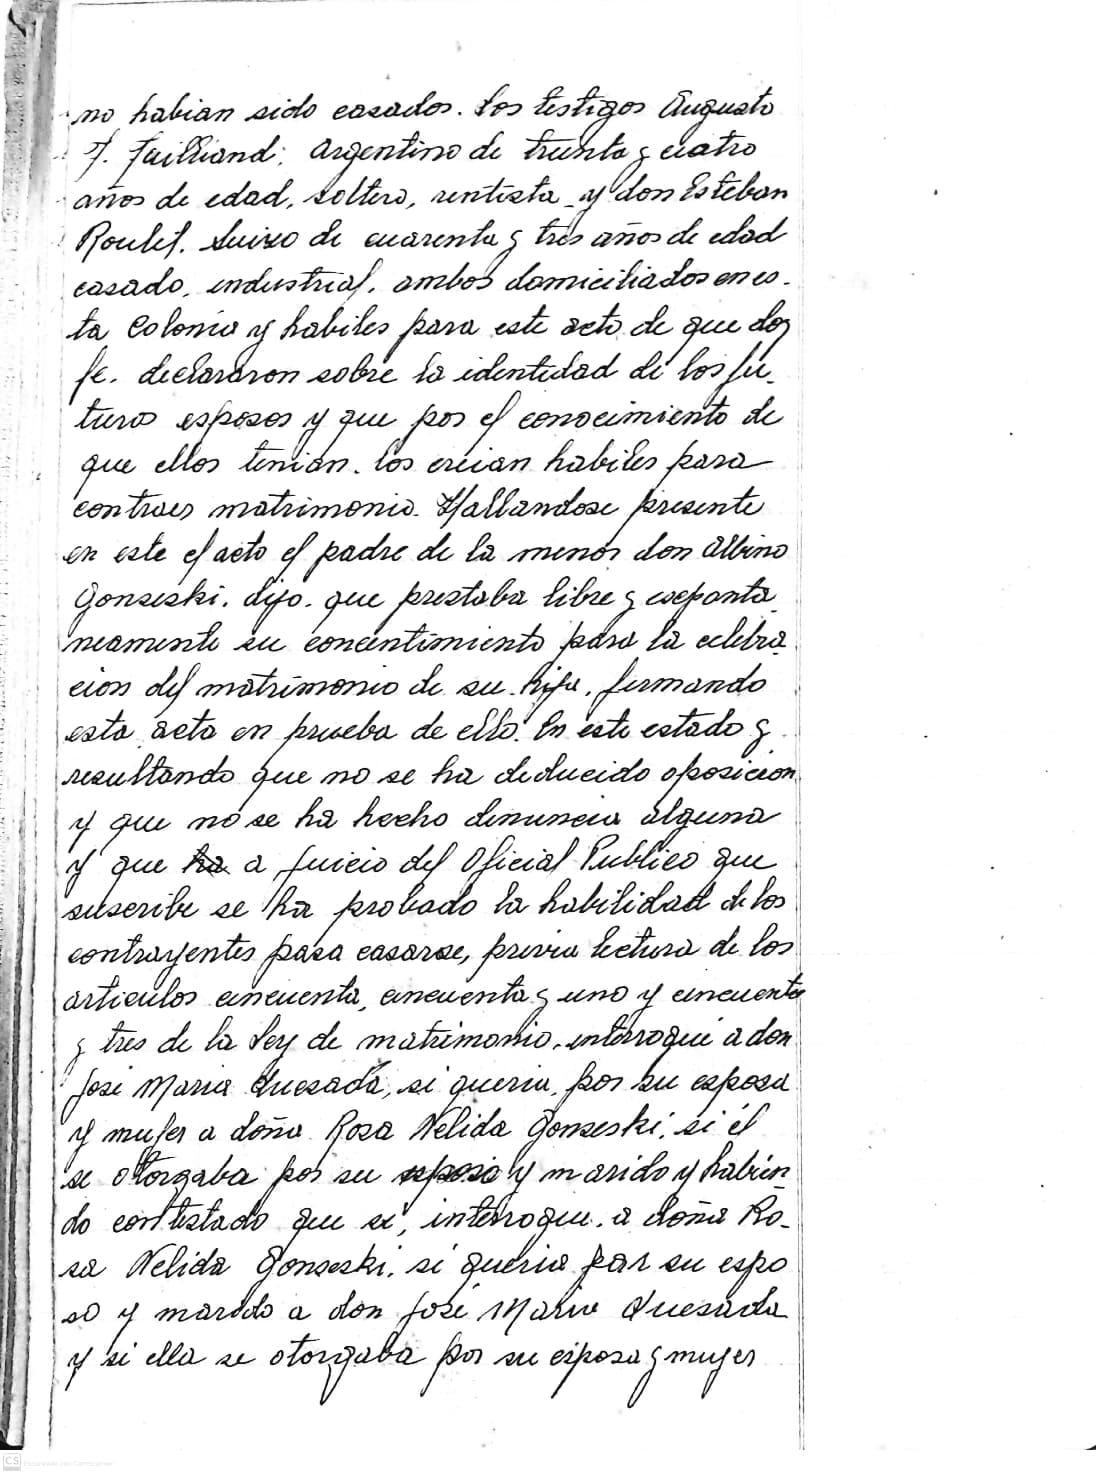 no habian sido casados. Los testigos Augusto
F. Juilliand; Argentino de treinta y cuatro
años de edad, soltero, rentista y don Esteban
Roulet. Suizo de cuarenta y tres años de edad
casado, industrial, ambos domiciliados en es-
ta Colonia y habiles para este acto de que doy
fe. declararon sobre la identidad de los fu-
turos esposos y que por el conocimiento de
que ellos tenian. los creian habiles para
contraer matrimonio. Hallandose presente
en este el acto el padre de la menor don Albino
Gonseski. dijo. que prestaba libre y esponta
neamente su concentimiento para la celebra
cion del matrimonio de su hija, firmando
esta acta en prueba de ello. En este estado y
resultando que no se ha deducido oposicion
y que no se ha hecho denuncia alguna
y que ha a juicio del Oficial Publico que
suscribe se ha probado la habilidad de los
contrayentes para casarse, previa lectura de los
articulos cincuenta, cincuenta y uno y cincuenta
y tres de la Ley de matrimonio, interroqué a don
José Maria Quesada, si queria, por su esposa
y mujer a doña Rosa Nelida Gonseski, si él
se otorgaba por su esposo y marido y habien-
do contestado que si, interroque. a doña Ro-
sa Nelida Gonseski. si queria par su espo
so y marido a don José Maria Quesada
y si ella se otorgaba por su esposa y mujer
CS